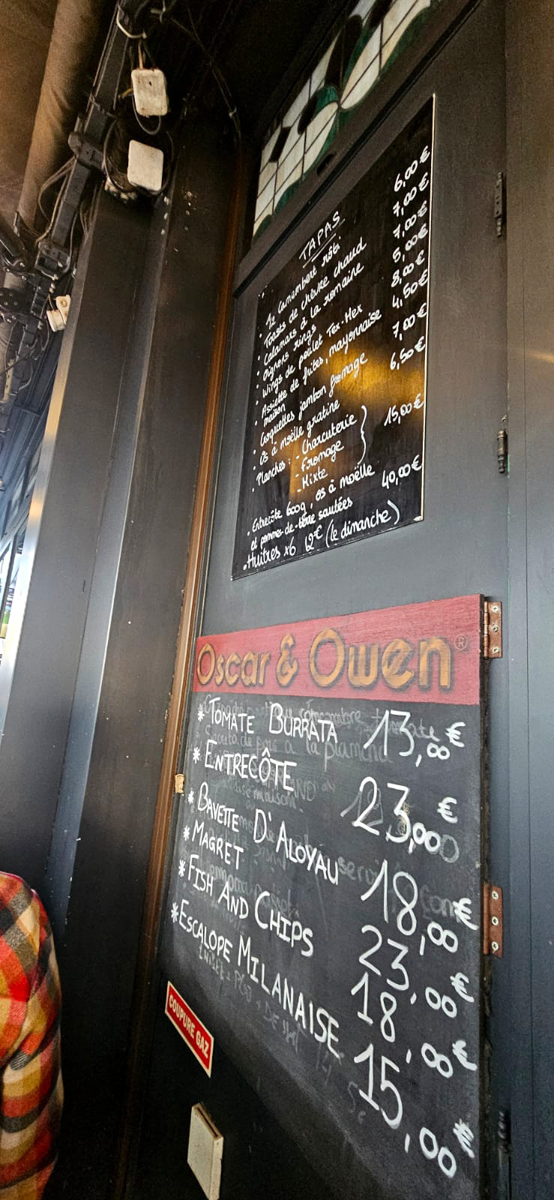 TAPAS
• Le Camembert rôti 6,00€
• Toasts de chèvre chaud 7,00€
• Calamars à la romaine 7,00€
• Oignons rings 5,00€
• Wings de poulet Tex-Mex 8,00€
• Assiette de frites, mayonnaise 4,50€
maison
• Croquettes jambon fromage 7,00€
• Os à moëlle gratiné 6,50€
• Planches : - Charcuterie
- Fromage 15,00€
- Mixte
• Entrecôte 600g, os à moëlle 40,00€
et pommes-de-terre sautées
• Huîtres x6 12€ (le dimanche)
Oscar & Owen®
* TOMATE BURRATA 13,00€
* ENTRECÔTE 23,00€
* BAVETTE D'ALOYAU 18,00€
* MAGRET 23,00€
* FISH AND CHIPS 18,00€
* ESCALOPE MILANAISE 15,00€
COUPURE GAZ